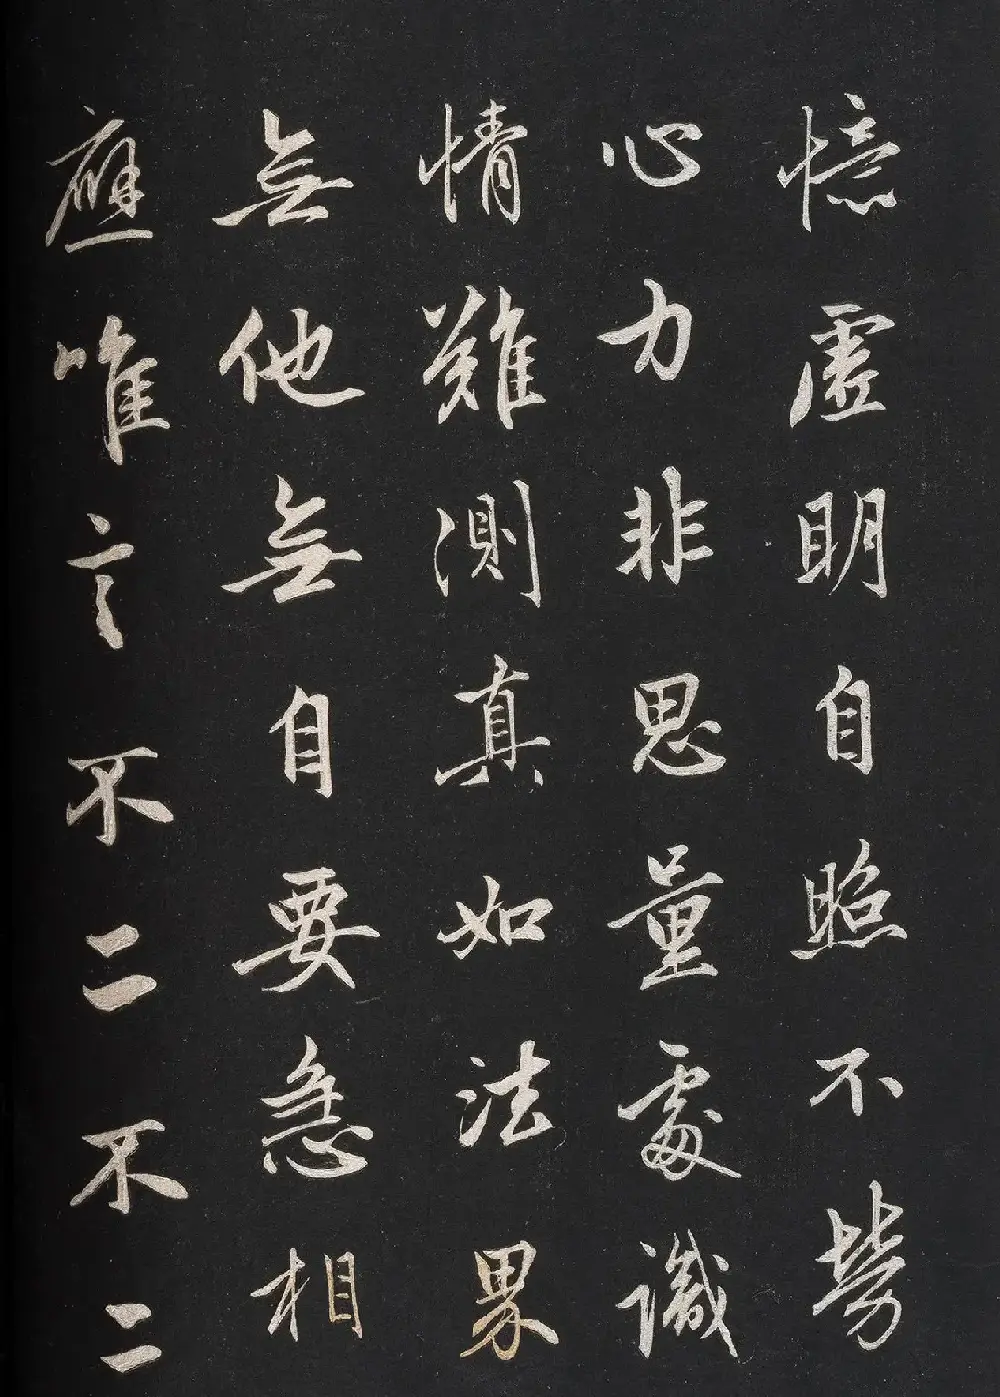 憶虛明自照不勞
心力非思量處識
情難測真如法界
無他無自要急相
應唯言不二不二